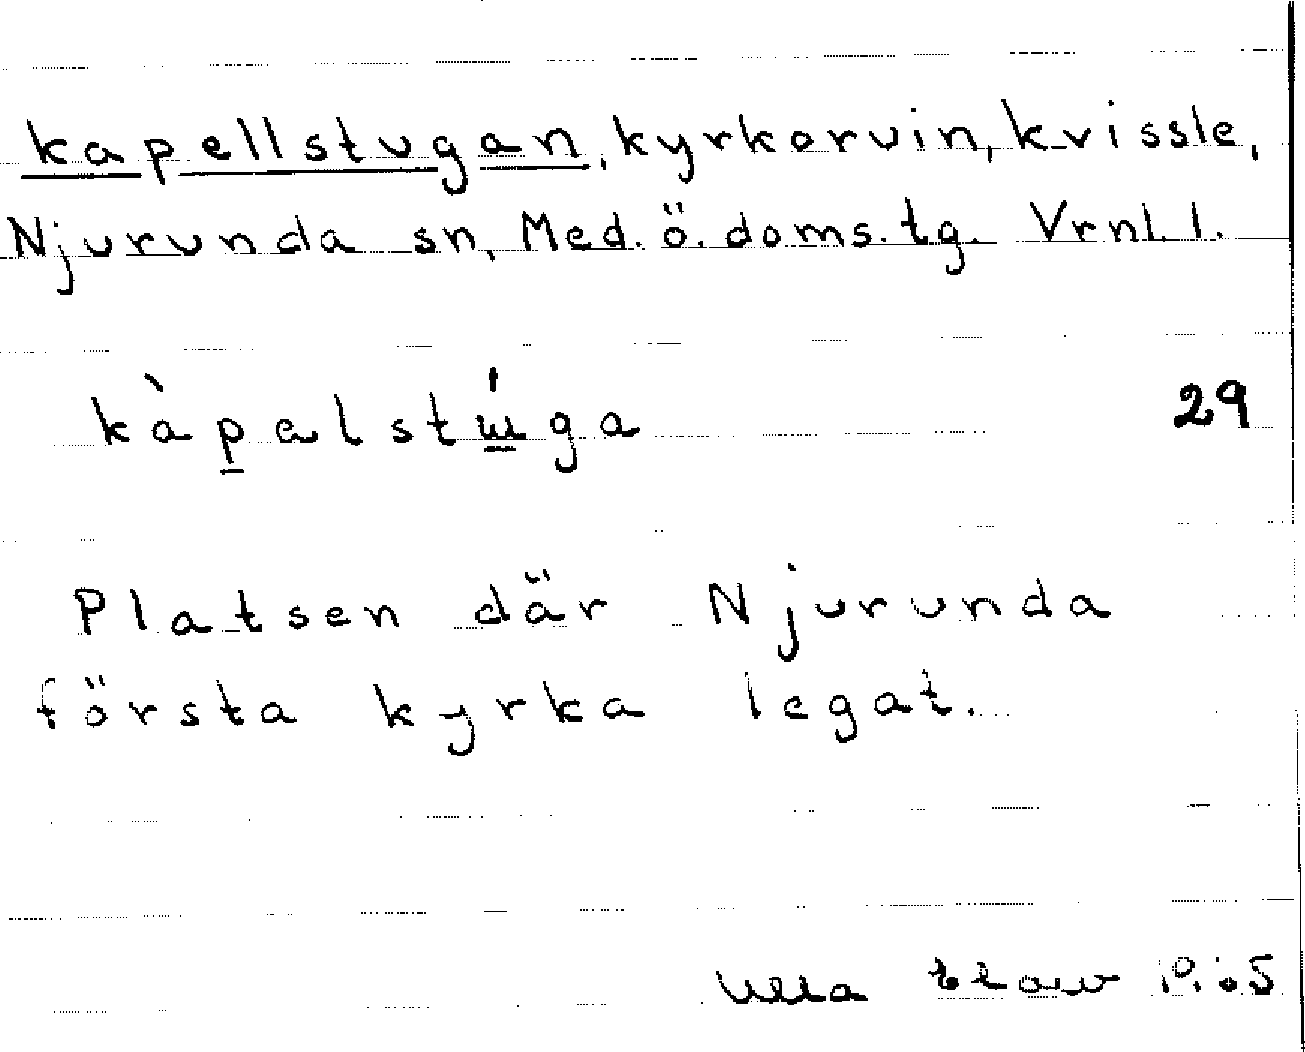 kapellstugan, kyrkorvin, kvissle,
Njurunda sn, Med. ö. doms. tg. Vrnl. l.
kàpalstɯ́ga 29
Platsen där Njurunda
första kyrka legat.
Ulla